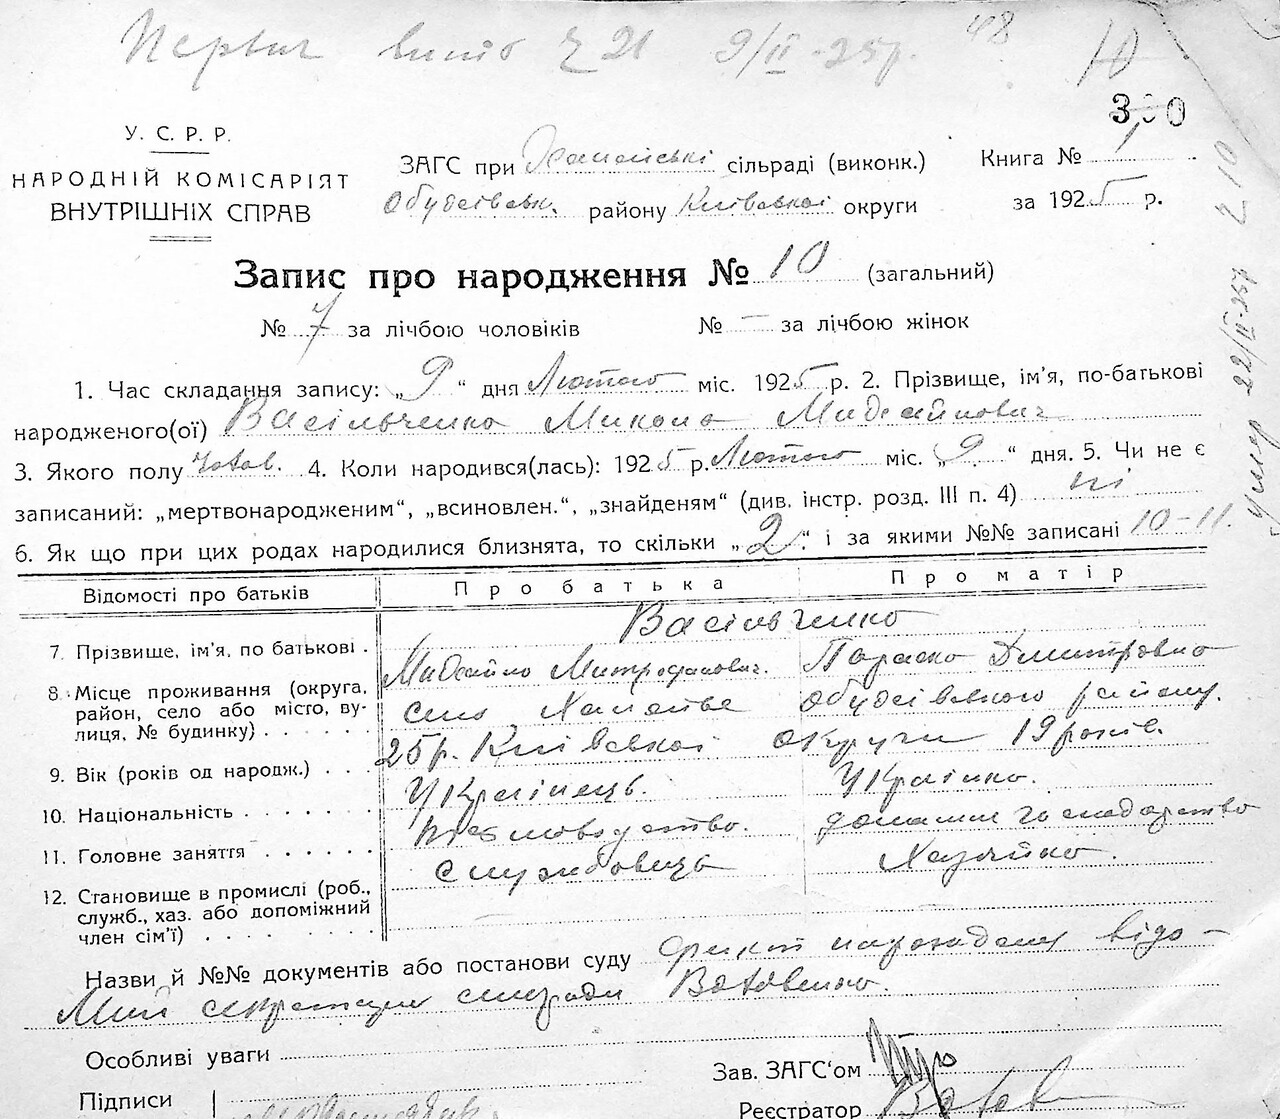 Первич 21 9/II-25р. 48
10
У. С. Р. Р.
НАРОДНІЙ КОМІСАРІЯТ
ВНУТРІШНІХ СПРАВ
ЗАГС при сільраді (виконк.)
району Київської округи
Книга №
за 1925 р.
Запис про народження № 10 (загальний)
№ 7 за лічбою чоловіків № — за лічбою жінок
1. Час складання запису: „9“ дня Лютого міс. 1925 р. 2. Прізвище, ім’я, по-батькові
народженого(ої) Васільченко Микола Михайлович
3. Якого полу чолов. 4. Коли народився(лась): 1925 р. Лютого міс. „9“ дня. 5. Чи не є
записаний: „мертвонародженим“, „всиновлен.“, „знайденям“ (див. інстр. розд. III п. 4) ні
6. Як що при цих родах народилися близнята, то скільки „2“ і за якими №№ записані 10-11.
Відомості про батьків
Про батька
Про матір
Васільченко
7. Прізвище, ім’я, по батькові .
Михайло Митрофанович. Параска Дмитровна
8. Місце проживання (округа,
район, село або місто, ву-
лиця, № будинку) . . . . . .
село району.
25р. Київської округи 19 років.
9. Вік (років од народж.) . . .
Українець. Українка.
10. Національність . . . . . . .
домашнє господарство
11. Головне заняття . . . . . .
службовець Хазяйка.
12. Становище в промислі (роб.,
служб., хаз. або допоміжний
член сім’ї) . . . . . . . . . .
Назви й №№ документів або постанови суду факт народження відо-
мий секретарю сільради
Особливі уваги
Зав. ЗАГС‘ом
Підписи
Реєстратор
умер 22/II-25р 210